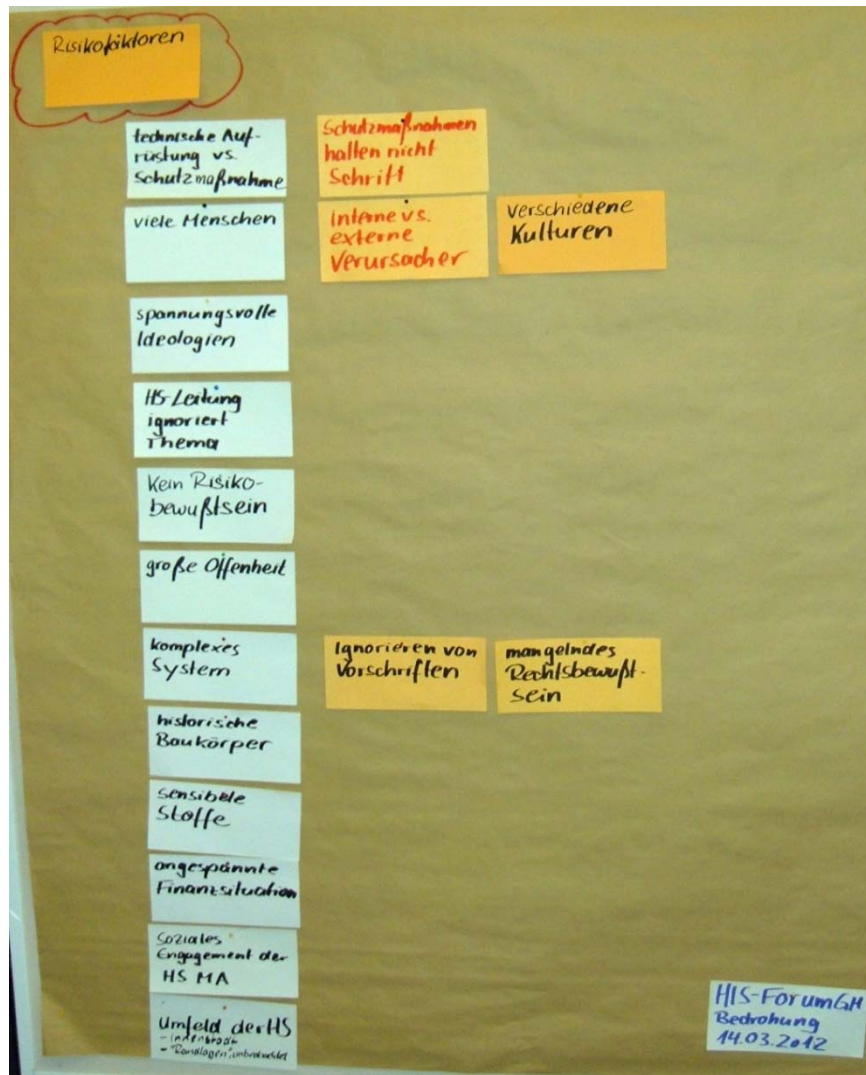 Risikofaktoren
technische Auf-
rüstung vs.
Schutzmaßnahme
Schutzmaßnahmen
halten nicht
Schritt
viele Menschen
Interne vs.
externe
Verursacher
Verschiedene
Kulturen
spannungsvolle
Ideologien
HS-Leitung
ignoriert
Thema
Kein Risiko-
bewußtsein
große Offenheit
komplexes
System
Ignorieren von
Vorschriften
mangelndes
Rechtsbewußt-
sein
historische
Baukörper
sensibele
Stoffe
angespannte
Finanzsituation
Soziales
Engagement der
HS MA
Umfeld der HS
- Innenstadt
- "Randlagen",
HIS-Forum GH
Bedrohung
14.03.2012